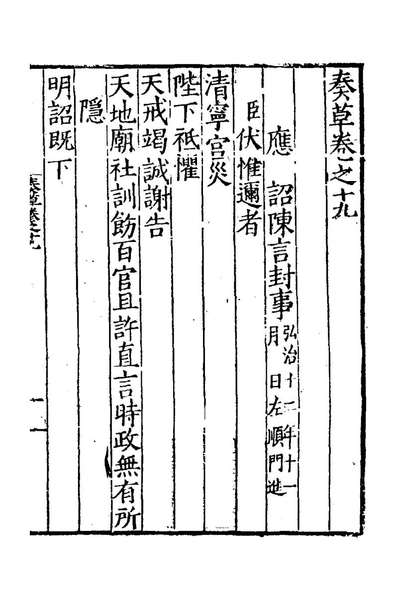 奏草卷之十九
應　詔陳言封事
弘治十一年十一
月　日左順門進
臣伏惟邇者
清寧宮災
陛下祗懼
天戒竭誠謝告
天地廟社訓飭百官且許直言時政無有所
隱
明詔既下
奏草卷之十九